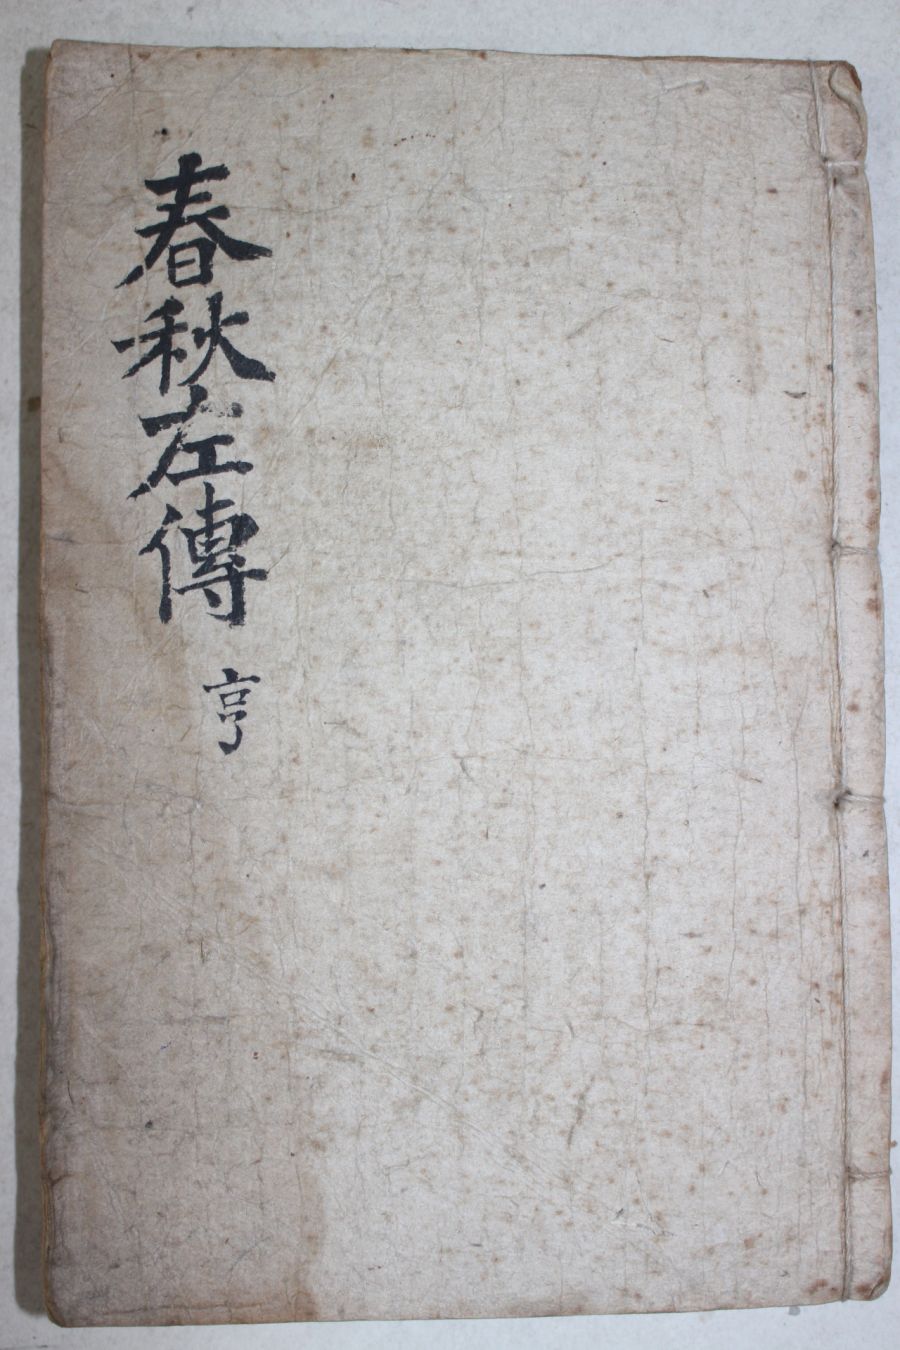 春秋左傳
亨